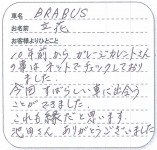 車名 BRABUS
お名前 立花
お客様よりひとこと
10年前からガレージカレントさん
の事はネットでチェックしており
ました。
今回すばらしい車に出会う
ことができました。
これも縁だと思います。
池田さん ありがとうございました